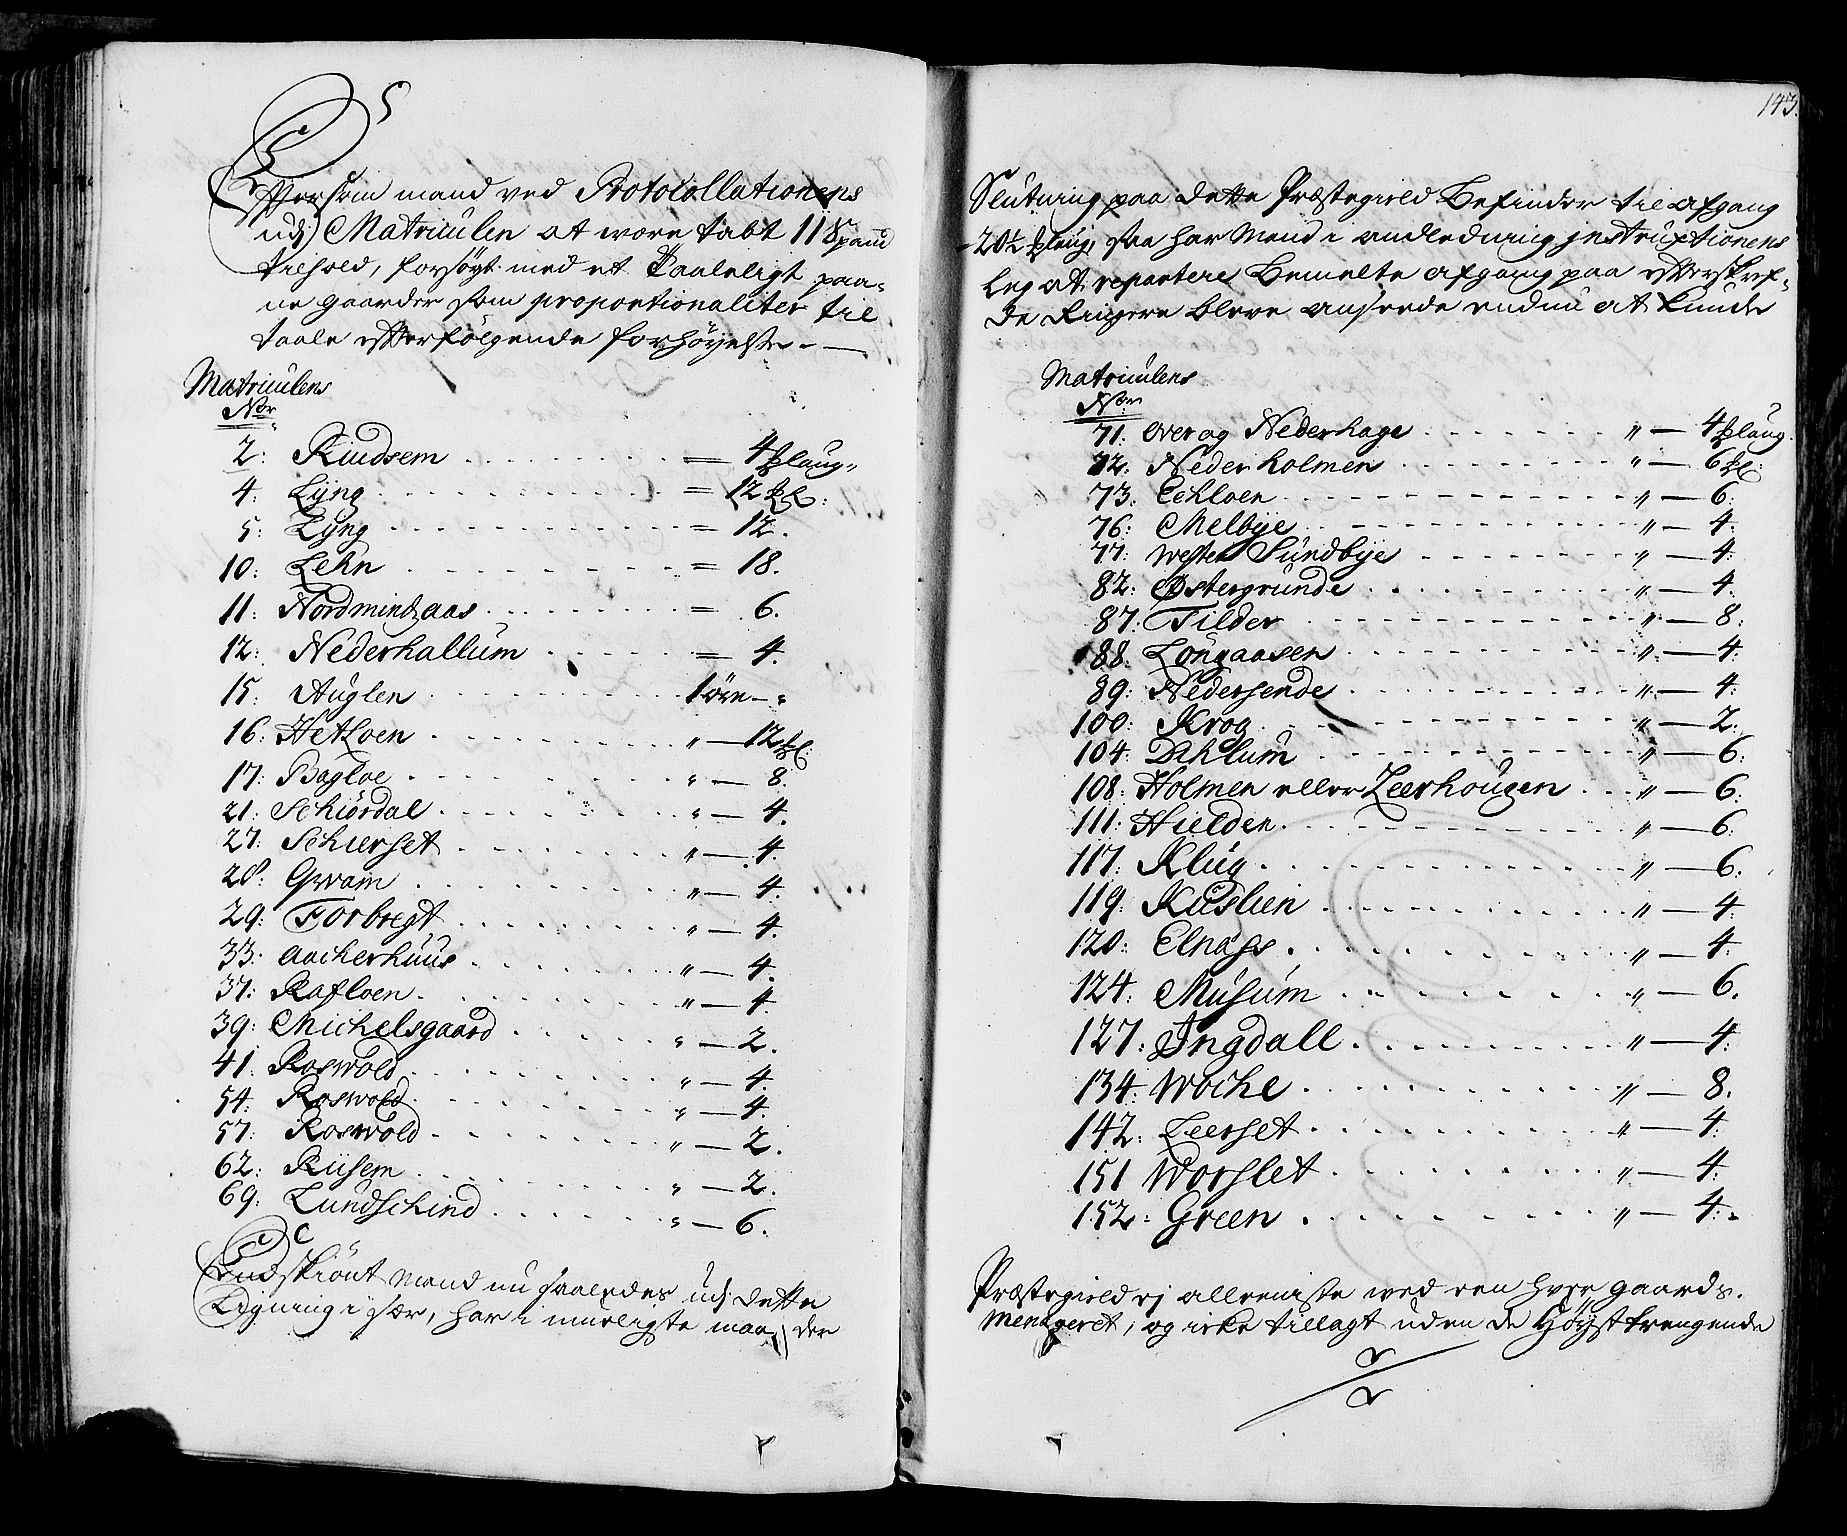 Eftersom mand ved Protocollationens
udj Matriculen at være tabt 11 Spand
tilhold, forsøgt med et taaleligt paa-
ne gaarder som proportionaliter til
taale efterfølgende forhøyelse.
Matriculens
Nor
2: Rindsem = 4 Øtzlaug
4: Lÿng = 12 Øtzl:
5: Lyng = 12.
10: Lehn = 18.
11: Nordmindzaas = 6.
12: Nederhallum = 4.
15: Auglen 1 øre — "
16: Hetloen " — 12 Øtzl:
17: Bagloe " — 8.
21: Schiørdal " — 4.
27: Schierset " — 4.
28: Gwam " — 4.
29: Forbregt " — 4.
33: Aackerhuus " — 4.
37: Rafloen " — 4.
39: Michelsgaard " — 2.
41: Roswold " — 4.
54: Roswold " — 4.
57: Roswold " — 2.
62: Riisem " — 2.
69: Lundschind " — 6.
Endskiønt mand nu saaledes udj dette
Ligning i sær, har i mueligste maader
143.
Slutning paa dette Præstegield befinder til afgang
20½ Øtzlaug, saa har mand i anledning jnstruxtionens
leg at repartere bemelte afgang paa efterskref-
de Ringere bleve anseede endnu at kunde
Matriculens
Nor
71: over og Nederhage " — 4 Øtzlaug.
72: Neder holmen " — 6 Øtzl:
73: Echloen " — 6.
76: Melbye " — 4.
77: Wester Sundbye " — 4.
82: Østergrunde " — 4.
87: Tilder " — 8.
88: Longaasen " — 4.
89: Nedersende " — 4.
100: Krog " — 2.
104: Dehlum " — 6.
108: Holmen eller Leerhougen " — 6.
111: Hielden " — 6.
117: Klug " — 6.
119: Kuslien " — 4.
120: Elnæss " — 4.
124: Musum " — 6.
127: Ingdall " — 4.
134: Woche " — 8.
142: Leerset " — 4.
151 Worslet " — 4.
152: Green " — 4.
Præstegield ej alleeniste ved een hver gaards.
, og icke tillagt uden de Høyst trengende